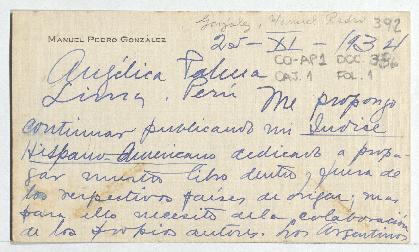 González, Manuel Pedro 392
MANUEL PEDRO GONZÁLEZ
25-XI-1934
CO-AP1 DOC. 386
CAJ. 1 FOL. 1
Angélica Palma
Lima, Perú Me propongo
continuar publicando mi Índice
Hispano-Americano dedicado a propa-
gar nuestro libro dentro y fuera de
los respectivos países de origen; mas
para ello necesito de la colaboración
de los propios autores. Los Argentinos